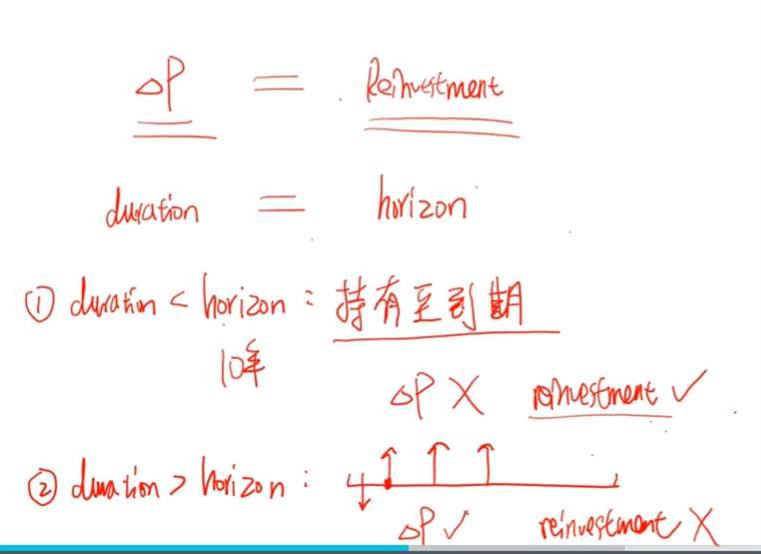 △P = Reinvestment
duration = horizon
① duration < horizon : 持有至到期
10年
△P X reinvestment ✓
② duration > horizon :
△P ✓ reinvestment X